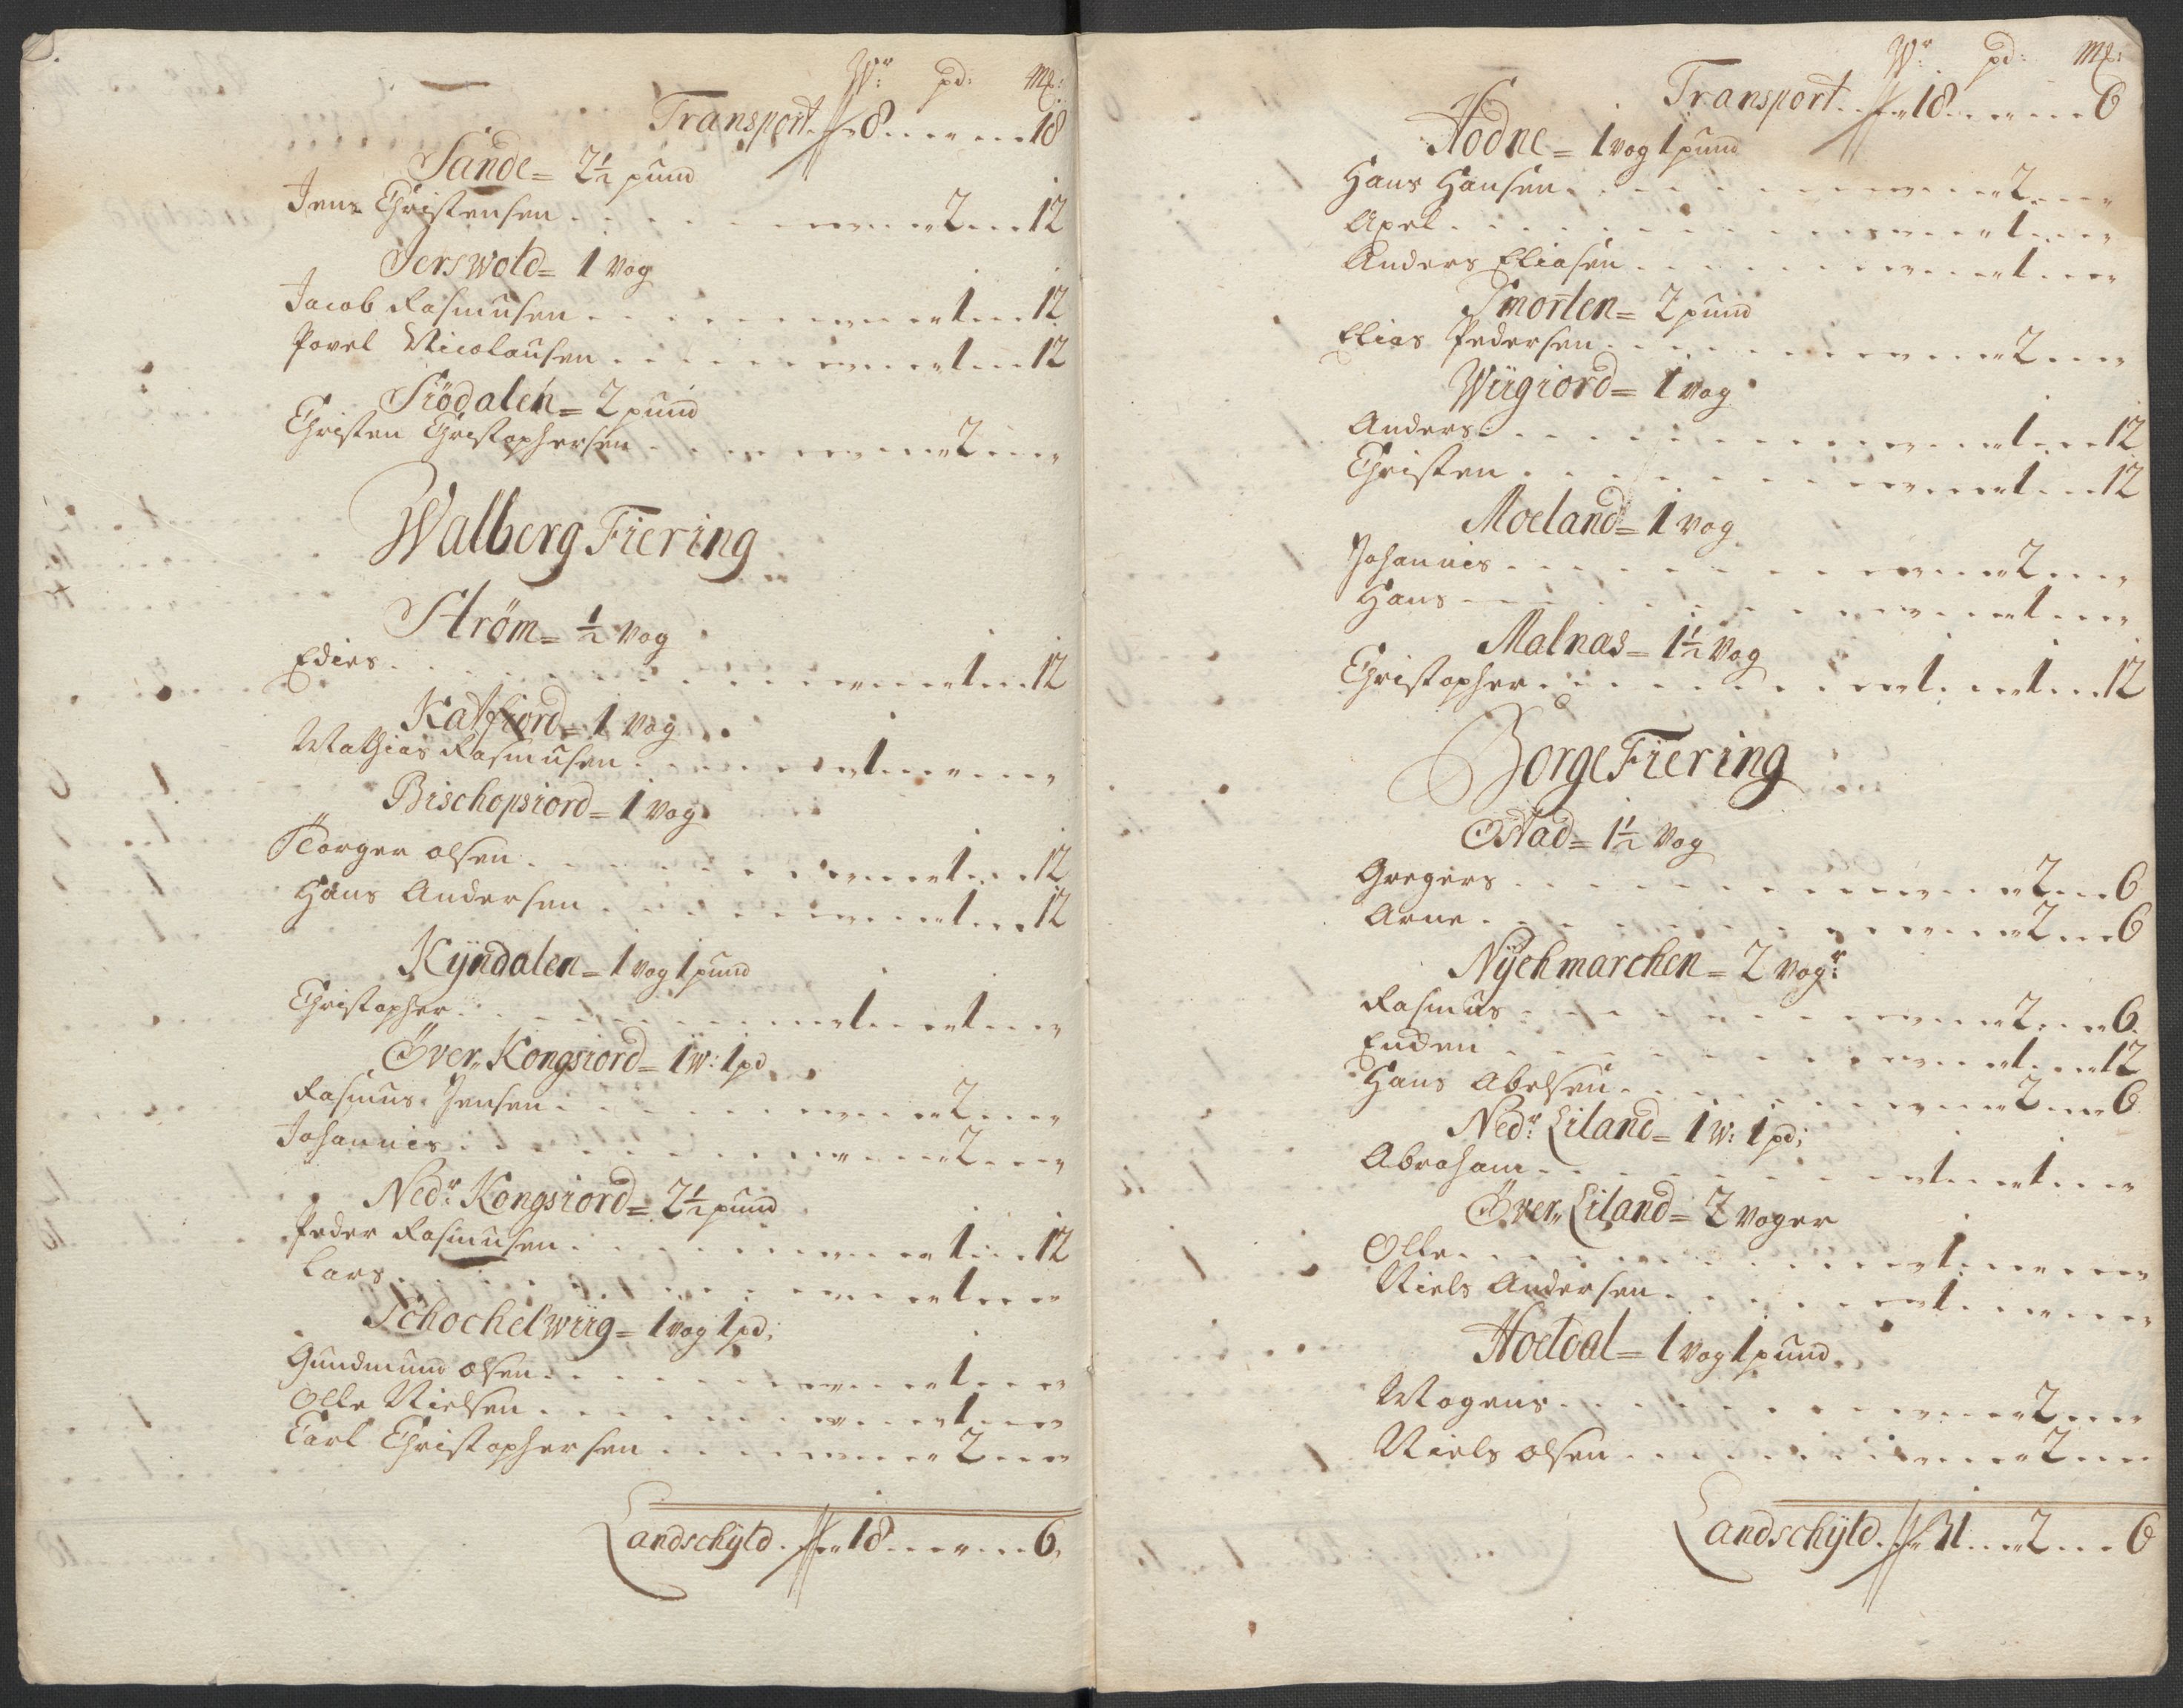 Wr: pd: Mk:
Transport. 8 - - - 18
Sande = 2½ pund
Jens Christensen - - 2 - 12
Jerswold = 1 Vog
Jacob Rasmusen - - 1 - 12
Povel Nicolausen - - 1 - 12
Siödalen = 2 pund
Christen Christophersen - - 2 - -
Walberg Fiering
Ström = ½ Vog
Edies - - 1 - 12
Katfiord = 1 Vog
Mathias Rasmusen - 1 - - -
Bischopsiord = 1 Vog
Torger olsen - - 1 - 12
Hans Andersen - - 1 - 12
Kÿndalen = 1 vog 1 pund
Christopher - 1 - 1 - -
Över Kongsiord = 1 w: 1 pd
Rasmus Jensen - - 2 - -
Johannis - - 2 - -
Nedr: Kongsiord = 2½ pund
Peder Rasmusen - - 1 - 12
Lars - - 1 - -
Schochelwiig = 1 vog 1 pd:
Gundmund olsen - - 1 - -
Olle Nielsen - - 1 - -
Carl Christophersen - - 2 - -
Landschÿld. 18 - - - 6,
Wr: pd: Mk:
Transport. 18 - - - 6
Hodne = 1 vog 1 pund
Hans Hansen - - 2 - -
Axel - - 1 - -
Anders Eliasen - - 1 - -
Smorten = 2 pund
Elias Pedersen - - 2 - -
Wiigiord = 1 vog
Anders - - 1 - 12
Christen - - 1 - 12
Moeland = 1 vog
Johannis - - 2 - -
Hans - - 1 - -
Malnas = 1½ Vog
Christopher - 1 - 1 - 12
Borge Fiering
Östad = 1½ Vog
Gregers - - 2 - 6
Arne - - 2 - 6
Nÿchmarchen = 2 vogr:
Rasmus - - 2 - 6
Enden - - 1 - 12
Hans Abelsen - - 2 - 6
Nedr: Liland = 1 w: 1 pd:
Abraham - 1 - 1 - -
Över Liland = 2 voger
Olle - 1 - - -
Niels Andersen - 1 - - -
Hoeldal = 1 vog 1 pund
Mogens - - 2 - -
Niels olsen - - 2 - -
Landschÿld. 31 - 2 - 6